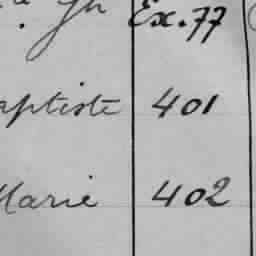 Ex. 77
aptiste 401
Marie 402